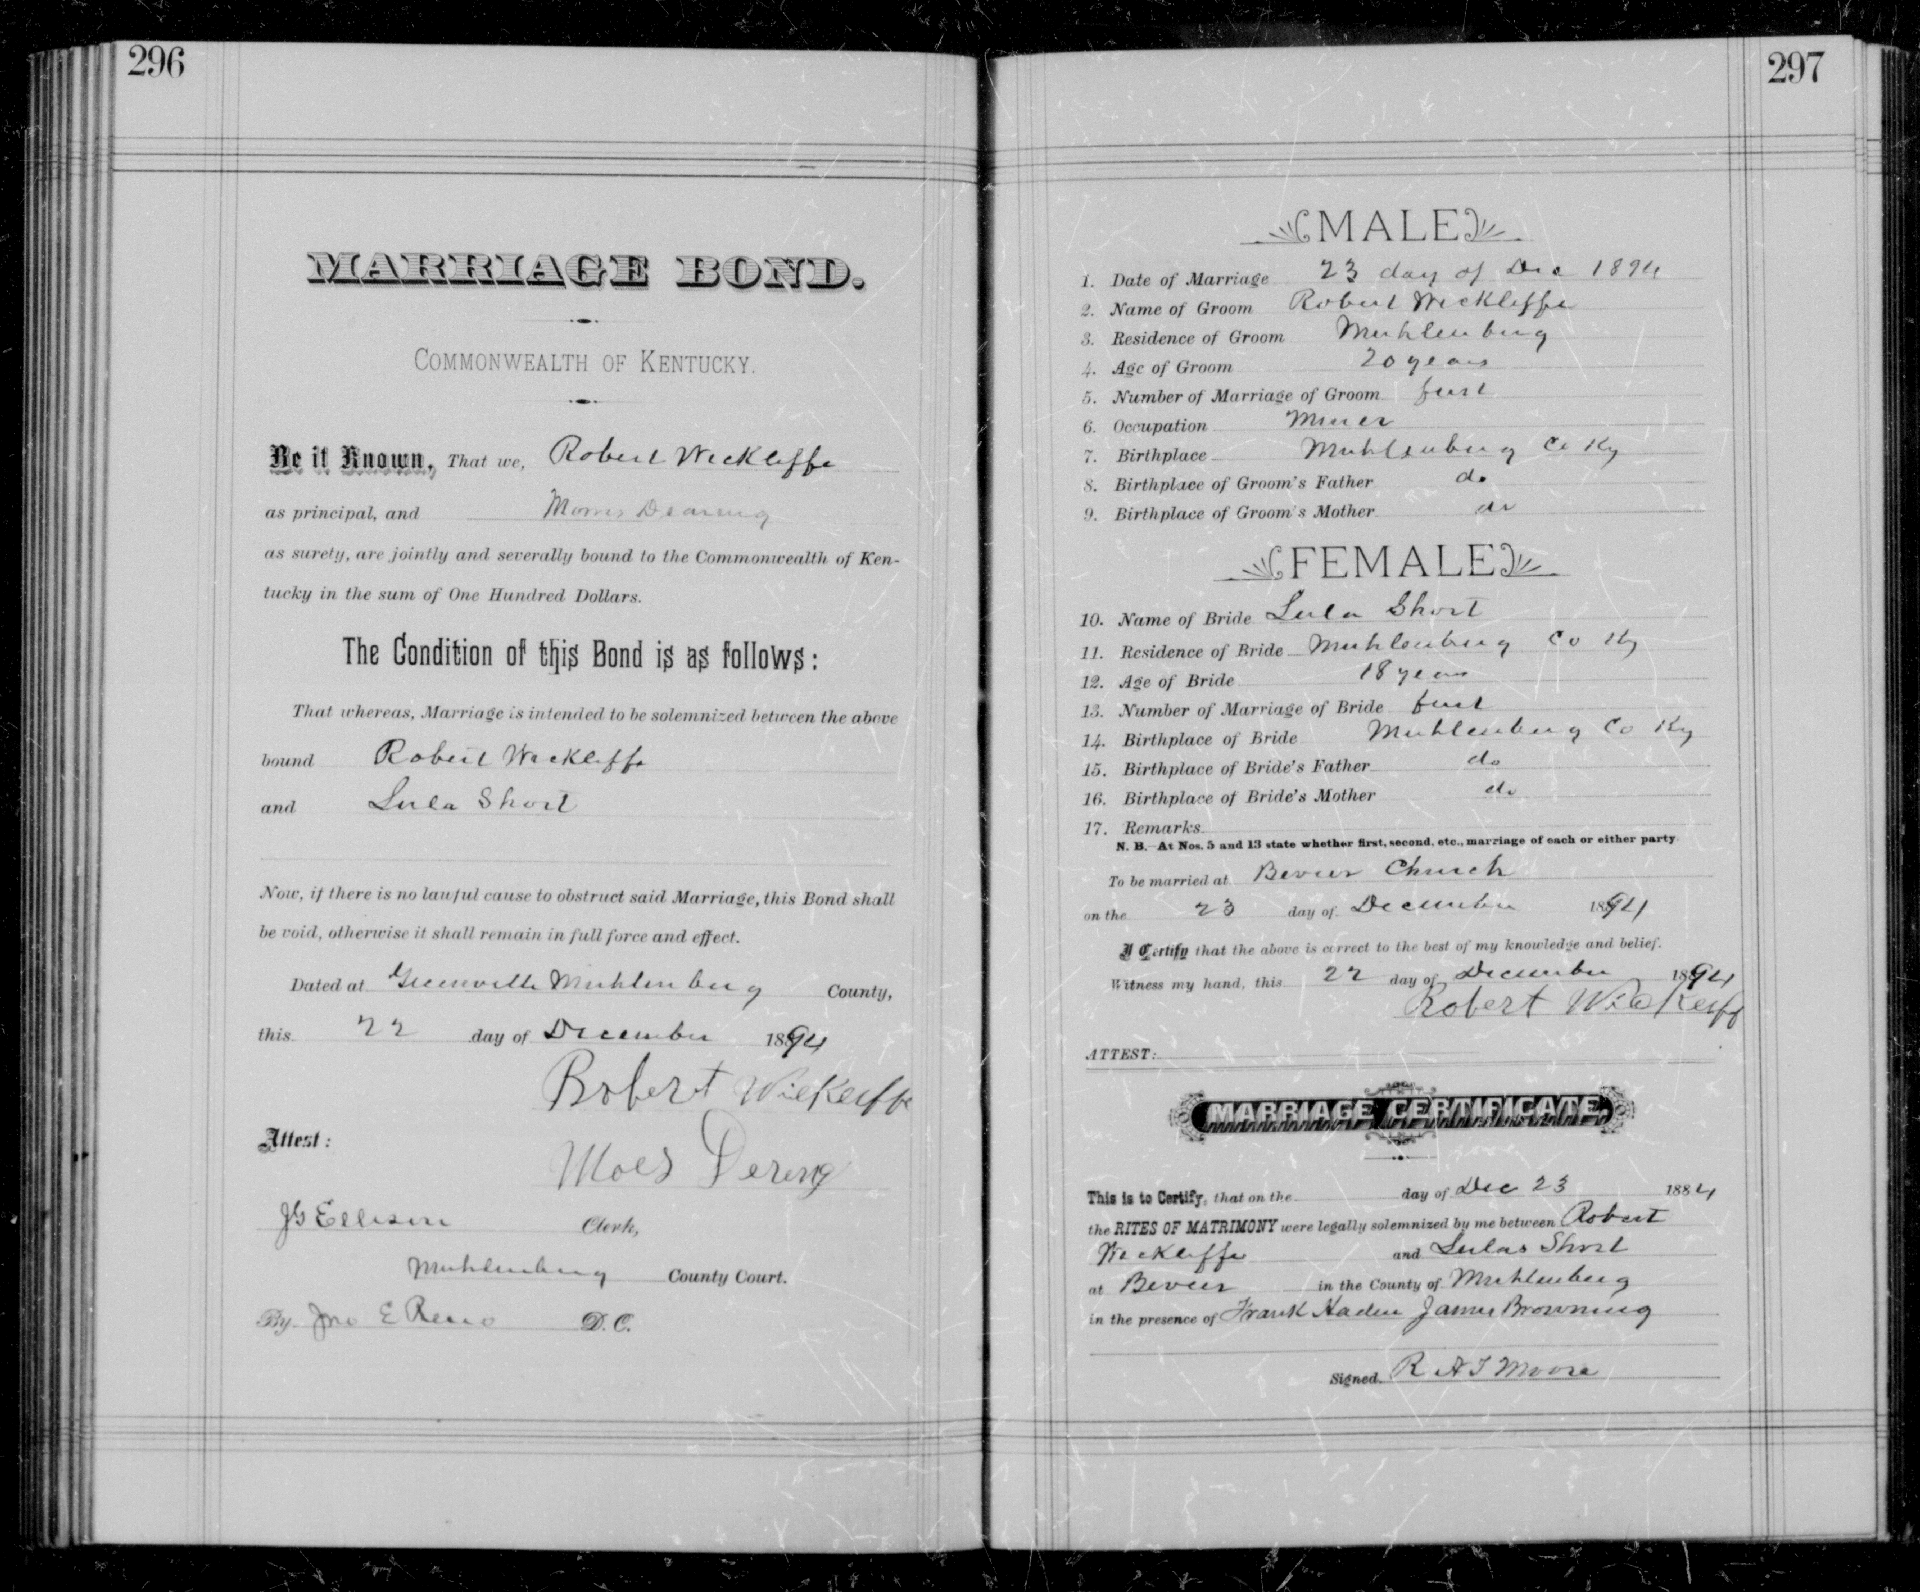 296
MARRIAGE BOND.
COMMONWEALTH OF KENTUCKY.
Be it Known, That we, Robert Wickliffe
as principal, and Morris Dearing
as surety, are jointly and severally bound to the Commonwealth of Ken-
tucky in the sum of One Hundred Dollars.
The Condition of this Bond is as follows:
That whereas, Marriage is intended to be solemnized between the above
bound Robert Wickliffe
and Lula Short
Now, if there is no lawful cause to obstruct said Marriage, this Bond shall
be void, otherwise it shall remain in full force and effect.
Dated at Greenville Muhlenburg County,
this 22 day of December 1894
Robert Wickliffe
Attest:
Moes Dering
J G Ellison Clerk,
Muhlenburg County Court.
By Jno E Reno D. C.
297
MALE
1. Date of Marriage 23 day of Dec 1894
2. Name of Groom Robert Wickliffe
3. Residence of Groom Muhlenburg
4. Age of Groom 20 years
5. Number of Marriage of Groom first
6. Occupation Miner
7. Birthplace Muhlenburg Co Ky
8. Birthplace of Groom's Father do
9. Birthplace of Groom's Mother do
FEMALE
10. Name of Bride Lula Short
11. Residence of Bride Muhlenburg Co Ky
12. Age of Bride 18 years
13. Number of Marriage of Bride first
14. Birthplace of Bride Muhlenburg Co Ky
15. Birthplace of Bride's Father do
16. Birthplace of Bride's Mother do
17. Remarks
N. B.—At Nos. 5 and 13 state whether first, second, etc., marriage of each or either party
To be married at Bevier Church
on the 23 day of December 1894
I Certify that the above is correct to the best of my knowledge and belief.
Witness my hand, this 22 day of December 1894
Robert Wickliff
ATTEST:
MARRIAGE CERTIFICATE.
This is to Certify, that on the day of Dec 23 1884
the RITES OF MATRIMONY were legally solemnized by me between Robert
Wickliffe and Lulas Short
at Bevier in the County of Muhlenburg
in the presence of Frank Haden James Browning
Signed. R A J Moore